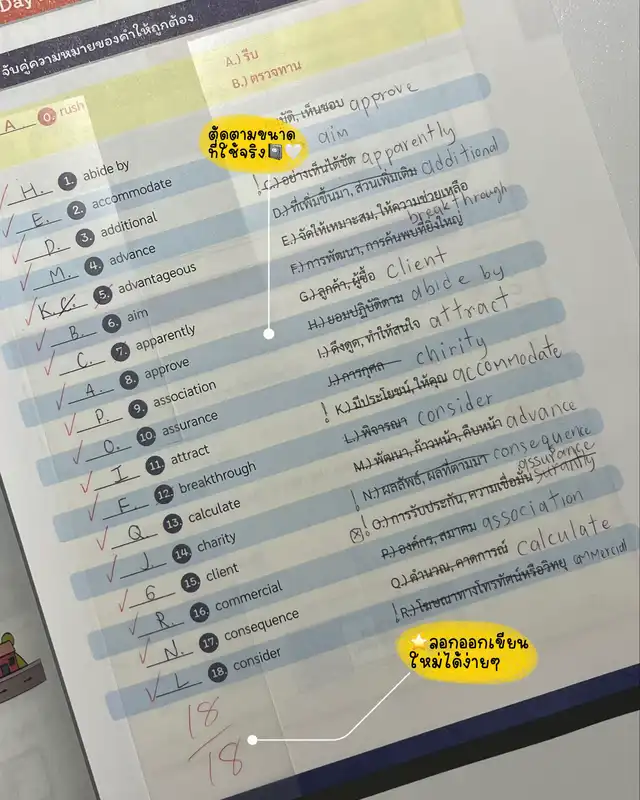 Day
จับคู่ความหมายของคำให้ถูกต้อง
A.) รีบ
B.) ตรวจทาน
A 0. rush
ตัดตามขนาด
ที่ใช้จริง
H. 1. abide by
E. 2. accommodate
D. 3. additional
M. 4. advance
K 5. advantageous
B. 6. aim
C. 7. apparently
A. 8. approve
P. 9. association
O. 10 assurance
I 11. attract
F. 12. breakthrough
Q 13. calculate
J 14. charity
G 15. client
R. 16. commercial
N. 17. consequence
L 18. consider
18
18
มัติ, เห็นชอบ approve
aim
! C.) อย่างเห็นได้ชัด apparently
D.) ที่เพิ่มขึ้นมา, ส่วนเพิ่มเติม additional
E.) จัดให้เหมาะสม, ให้ความช่วยเหลือ
F.) การพัฒนา, การค้นพบที่ยิ่งใหญ่ breakthrough
G.) ลูกค้า, ผู้ซื้อ client
H.) ยอมปฏิบัติตาม abide by
I.) ดึงดูด, ทำให้สนใจ attract
J.) การกุศล chirity
! K.) มีประโยชน์, ให้คุณ accommodate
L.) พิจารณา consider
M.) พัฒนา, ก้าวหน้า, คืบหน้า advance
! N.) ผลลัพธ์, ผลที่ตามมา consequence
! O.) การรับประกัน, ความเชื่อมั่น assurance
P.) องค์กร, สมาคม association
Q.) คำนวณ, คาดการณ์ calculate
! R.) โฆษณาทางโทรทัศน์หรือวิทยุ commercial
ลอกออกเขียน
ใหม่ได้ง่ายๆ